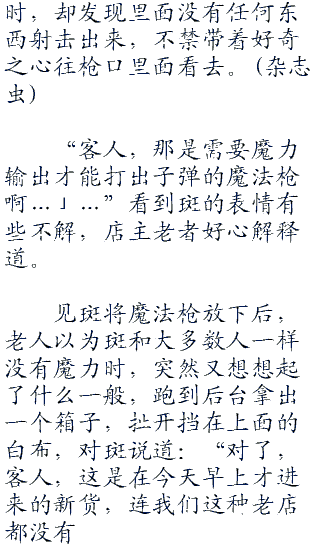 时，却发现里面没有任何东
西射击出来，不禁带着好奇
之心往枪口里面看去。(杂志
虫)
“客人，那是需要魔力
输出才能打出子弹的魔法枪
啊…」…”看到斑的表情有
些不解，店主老者好心解释
道。
见斑将魔法枪放下后，
老人以为斑和大多数人一样
没有魔力时，突然又想想起
了什么一般，跑到后台拿出
一个箱子，扯开挡在上面的
白布，对斑说道：“对了，
客人，这是在今天早上才进
来的新货，连我们这种老店
都没有